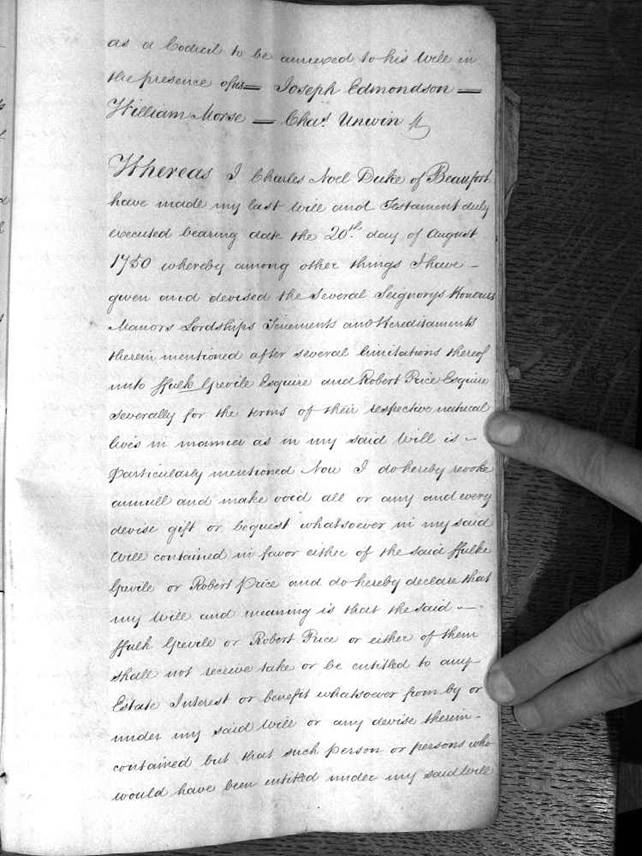 as a Codicil to be annexed to his Will in
the presence of us — Joseph Edmondson —
William Morse — Chas. Unwin
Whereas I Charles Noel Duke of Beaufort
have made my last Will and Testament duly
executed bearing date the 20th day of August
1750 whereby among other things I have –
given and devised the several Seignorys Honours
Manors Lordships Tenements and Hereditaments
therein mentioned after several limitations thereof
unto ffulk Grevile Esquire and Robert Price Esquire
severally for the terms of their respective natural
lives in manner as in my said Will is –
particularly mentioned Now I do hereby revoke
annull and make void all or any and every
devise gift or bequest whatsoever in my said
Will contained in favor either of the said ffulke
Grevile or Robert Price and do hereby declare that
my Will and meaning is that the said –
ffulk Grevile or Robert Price or either of them
shall not receive take or be entitled to any
Estate Interest or benefit whatsoever from by or
under my said Will or any devise therein –
contained but that such person or persons who
would have been entitled under my said Will